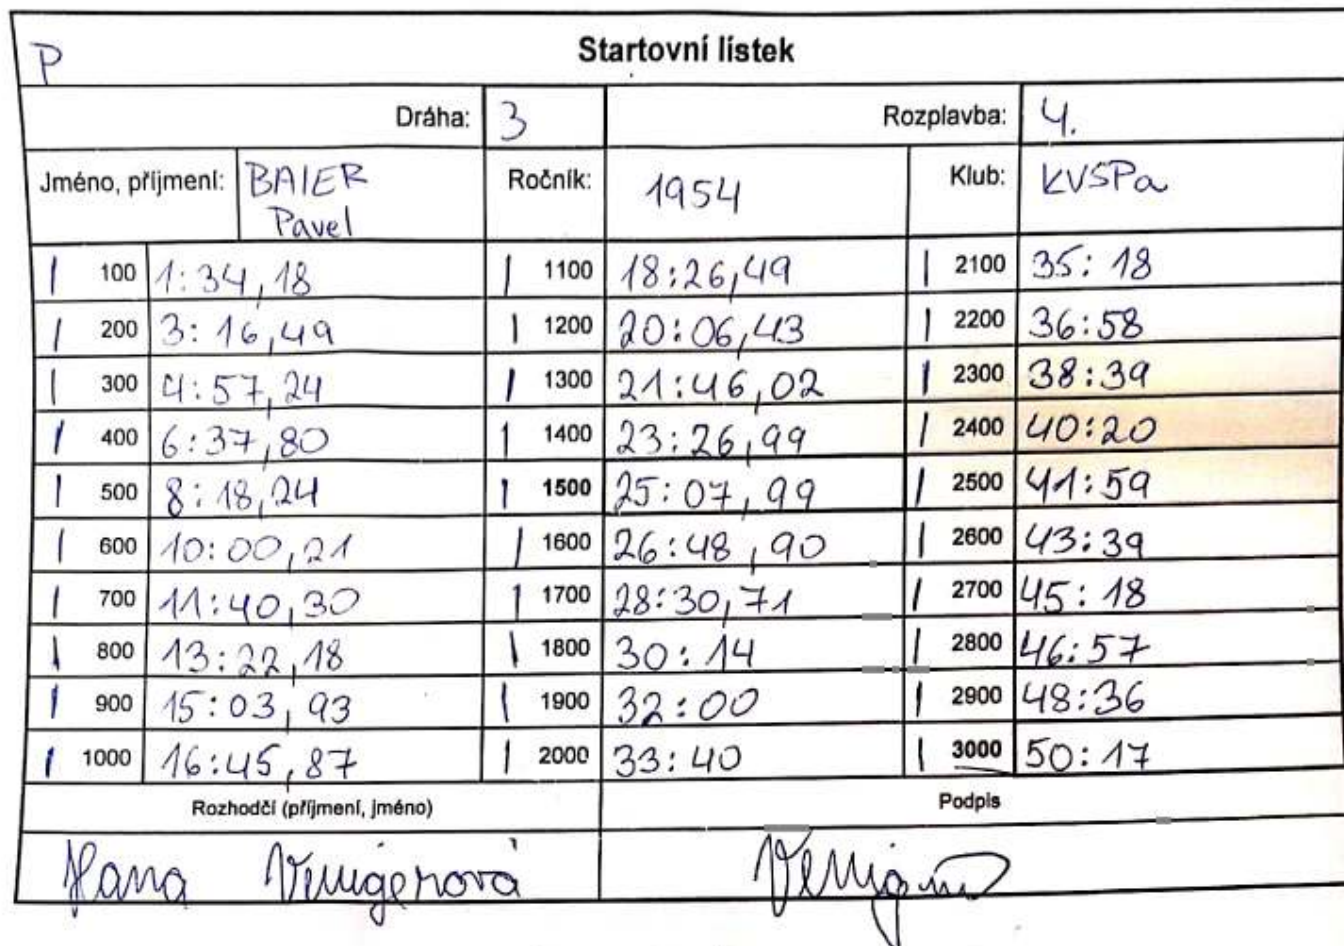 P
Startovní lístek
Dráha: 3 Rozplavba: 4.
Jméno, příjmení: BAIER Ročník: 1954 Klub: KVSPa
Pavel
| 100 1:34,18 | 1100 18:26,49 | 2100 35:18
| 200 3:16,49 | 1200 20:06,43 | 2200 36:58
| 300 4:57,24 | 1300 21:46,02 | 2300 38:39
| 400 6:37,80 | 1400 23:26,99 | 2400 40:20
| 500 8:18,24 | 1500 25:07,99 | 2500 41:59
| 600 10:00,21 | 1600 26:48,90 | 2600 43:39
| 700 11:40,30 | 1700 28:30,71 | 2700 45:18
| 800 13:22,18 | 1800 30:14 | 2800 46:57
| 900 15:03,93 | 1900 32:00 | 2900 48:36
| 1000 16:45,87 | 2000 33:40 | 3000 50:17
Rozhodčí (příjmení, jméno) Podpis
Hana